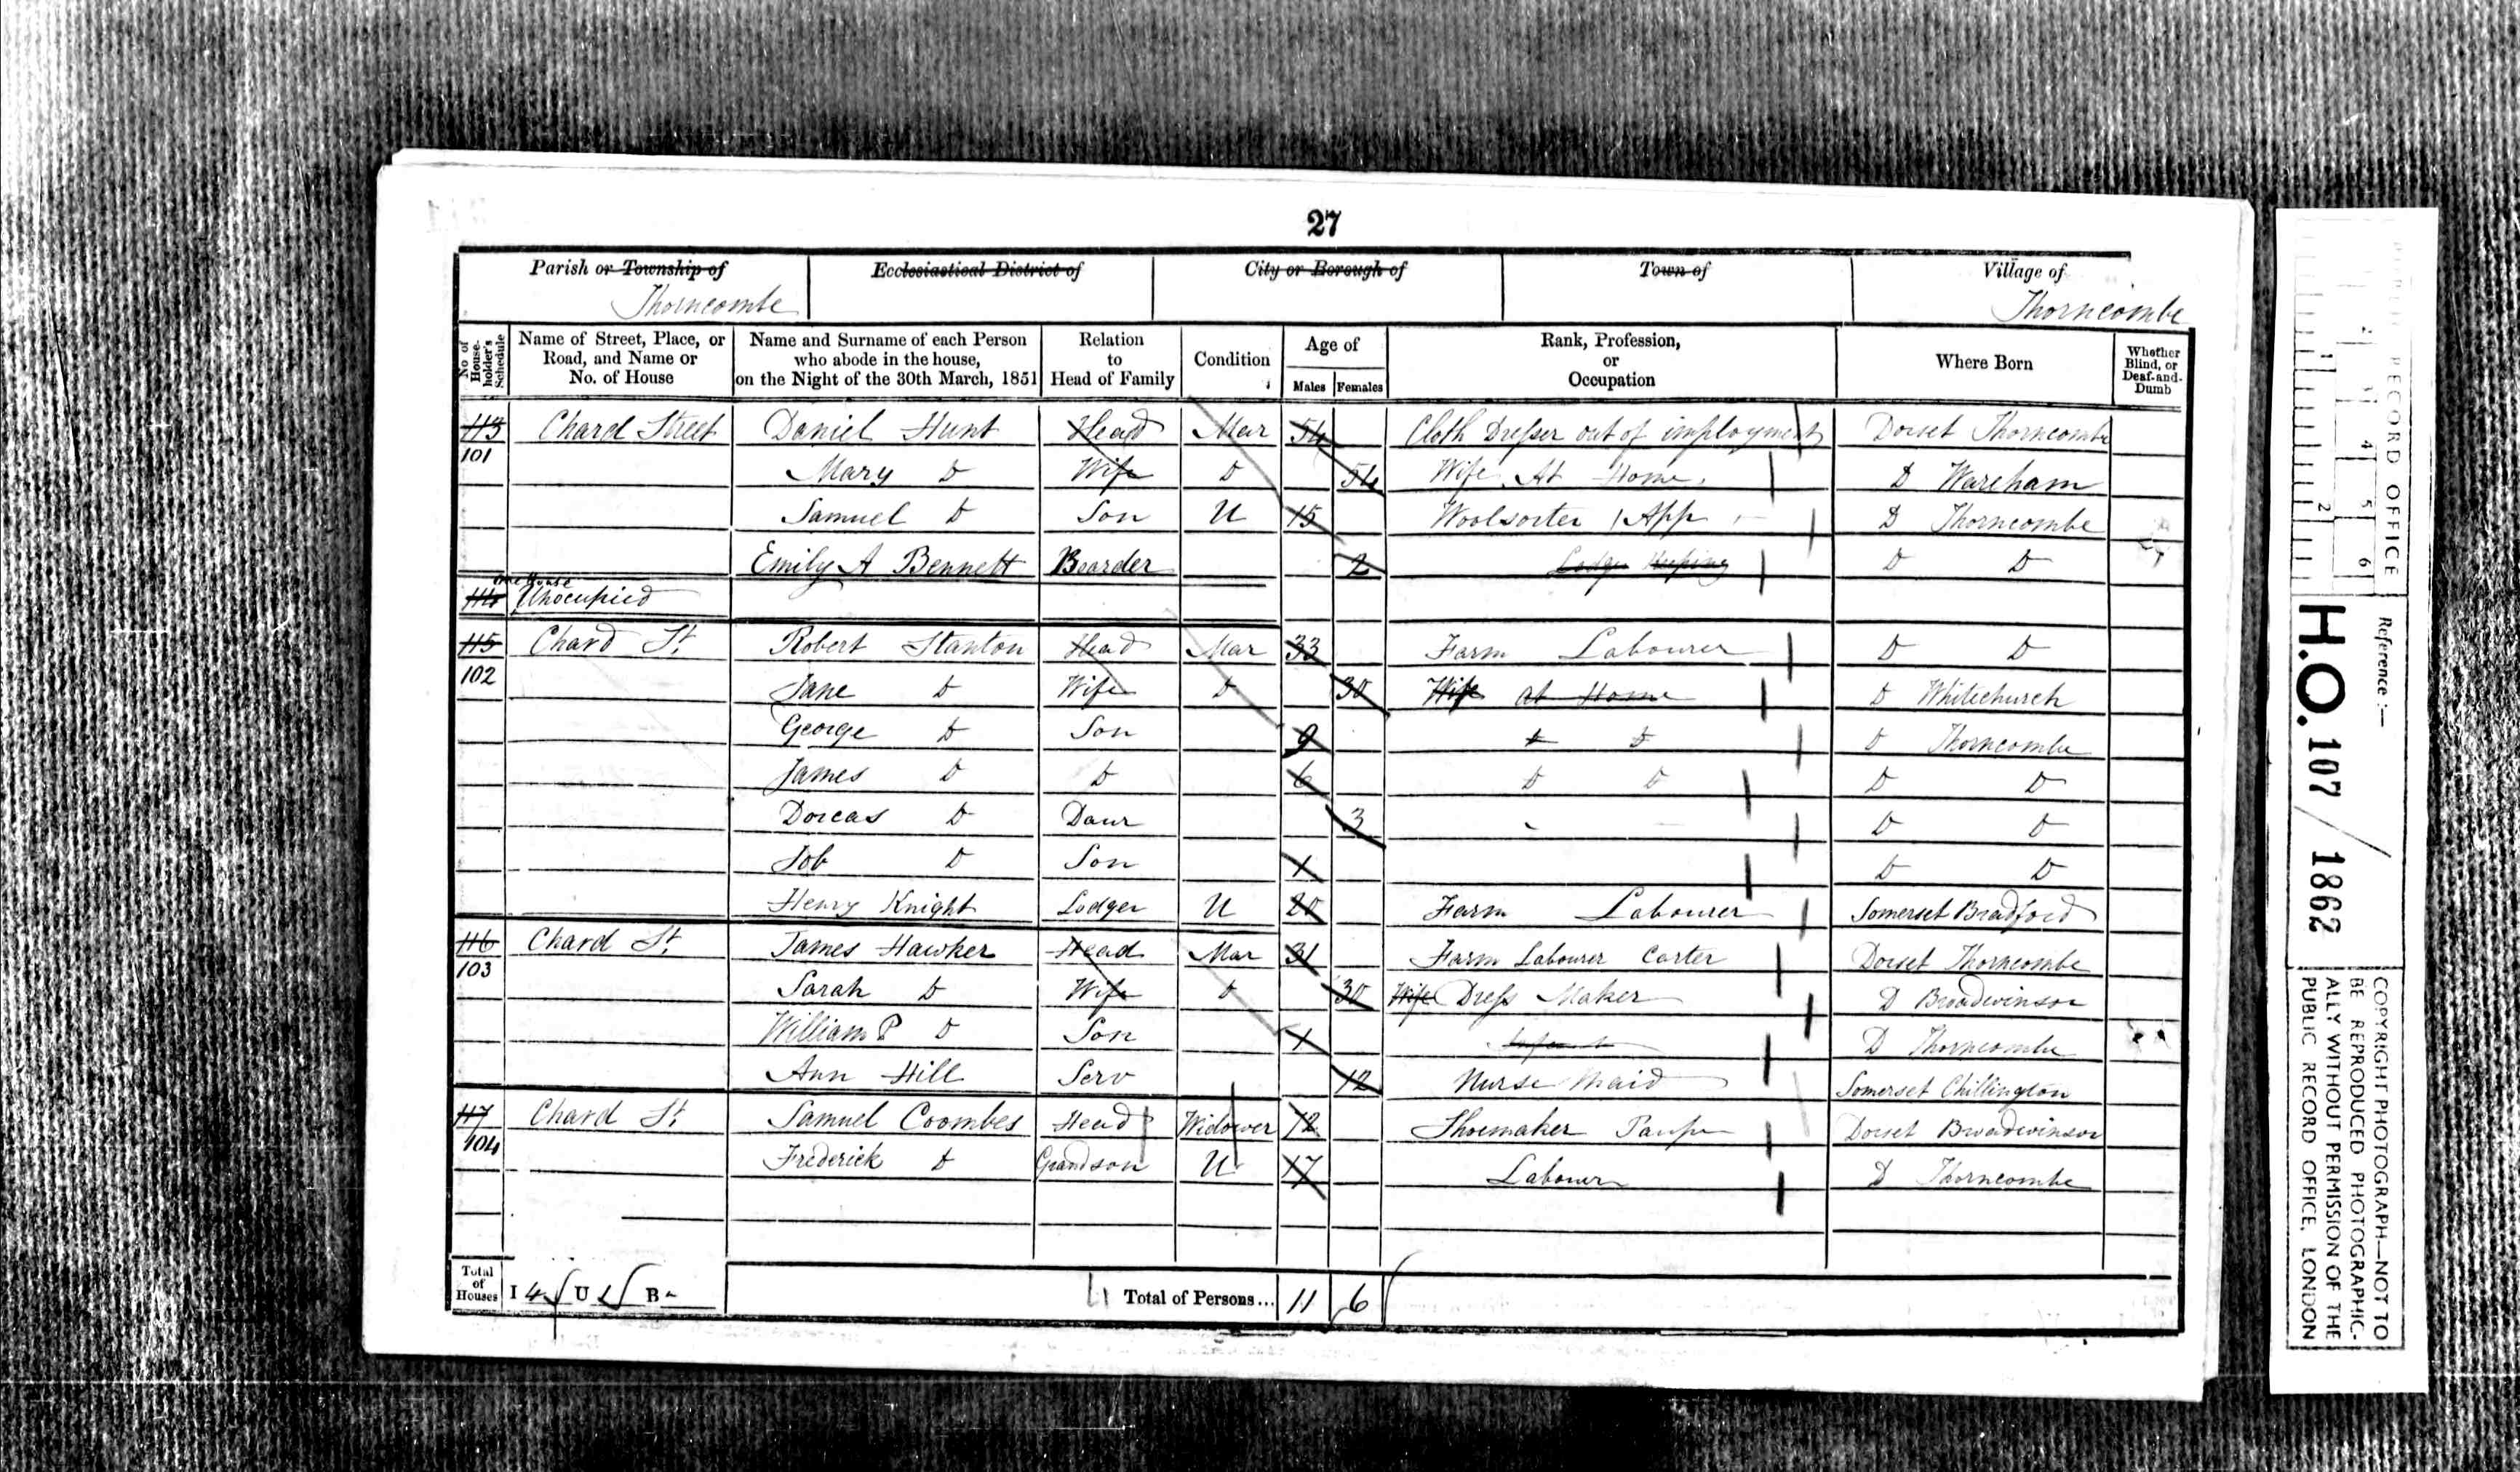 27
Parish or Township of Ecclesiastical District of City or Borough of Town of Village of
Thorncombe Thorncombe
No of House-holder's Schedule Name of Street, Place, or Road, and Name or No. of House Name and Surname of each Person who abode in the house, on the Night of the 30th March, 1851 Relation to Head of Family Condition Age of Males Females Rank, Profession, or Occupation Where Born Whether Blind, or Deaf-and-Dumb
113 Chard Street Daniel Hunt Head Mar 54 Cloth Dresser out of imployment Dorset Thorncombe
101 Mary D Wife D 54 Wife At Home D Wareham
Samuel D Son U 15 Woolsorter App D Thorncombe
Emily A Bennett Boarder 2 D D
114 one House Unocupied
115 Chard St. Robert Stanton Head Mar 33 Farm Labourer D D
102 Jane D Wife D 30 Wife at Home D Whitechurch
George D Son 9 D D D Thorncombe
James D D 6 D D D D
Dorcas D Daur 3 D D
Job D Son 1 D D
Henry Knight Lodger U 20 Farm Labourer Somerset Bradford
116 Chard St. James Hawker Head Mar 31 Farm Labourer Carter Dorset Thorncombe
103 Sarah D Wife D 30 Wife Dress Maker D Broadwinsor
William P D Son 1 Infant D Thorncombe
Ann Hill Serv 12 Nurse Maid Somerset Chillington
117 Chard St. Samuel Coombes Head Widower 72 Shoemaker Paup Dorset Broadwinsor
104 Frederick D Grandson U 17 Labourer D Thorncombe
Total of Houses I 4 U 1 B - Total of Persons... 11 6
RECORD OFFICE
1 2 4 5 6
Reference :—
H.O. 107 / 1862
COPYRIGHT PHOTOGRAPH—NOT TO
BE REPRODUCED PHOTOGRAPHIC-
ALLY WITHOUT PERMISSION OF THE
PUBLIC RECORD OFFICE, LONDON